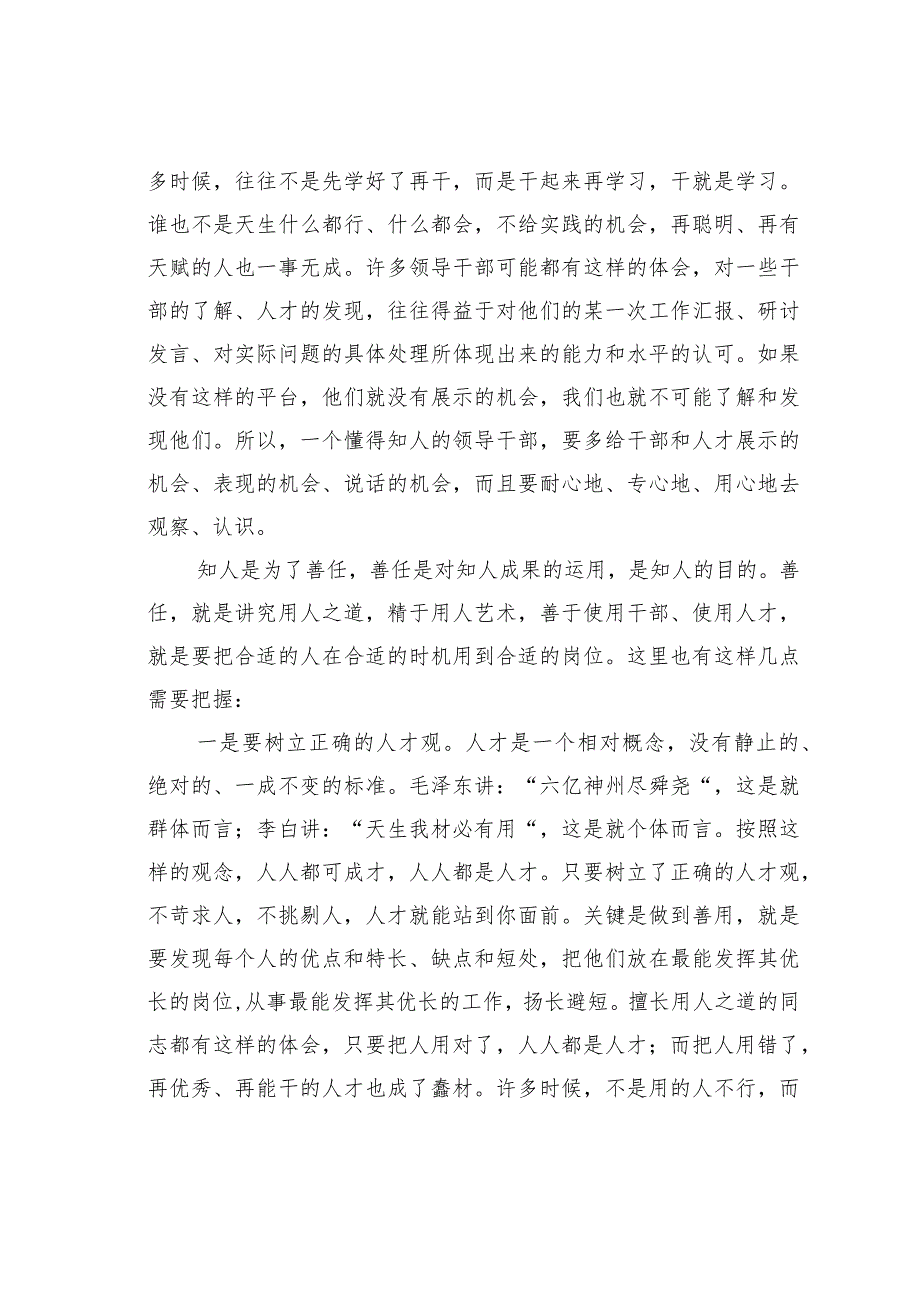 多时候，往往不是先学好了再干，而是干起来再学习，干就是学习。
谁也不是天生什么都行、什么都会，不给实践的机会，再聪明、再有
天赋的人也一事无成。许多领导干部可能都有这样的体会，对一些干
部的了解、人才的发现，往往得益于对他们的某一次工作汇报、研讨
发言、对实际问题的具体处理所体现出来的能力和水平的认可。如果
没有这样的平台，他们就没有展示的机会，我们也就不可能了解和发
现他们。所以，一个懂得知人的领导干部，要多给干部和人才展示的
机会、表现的机会、说话的机会，而且要耐心地、专心地、用心地去
观察、认识。
知人是为了善任，善任是对知人成果的运用，是知人的目的。善
任，就是讲究用人之道，精于用人艺术，善于使用干部、使用人才，
就是要把合适的人在合适的时机用到合适的岗位。这里也有这样几点
需要把握：
一是要树立正确的人才观。人才是一个相对概念，没有静止的、
绝对的、一成不变的标准。毛泽东讲：“六亿神州尽舜尧“，这是就
群体而言；李白讲：“天生我材必有用“，这是就个体而言。按照这
样的观念，人人都可成才，人人都是人才。只要树立了正确的人才观，
不苛求人，不挑剔人，人才就能站到你面前。关键是做到善用，就是
要发现每个人的优点和特长、缺点和短处，把他们放在最能发挥其优
长的岗位,从事最能发挥其优长的工作，扬长避短。擅长用人之道的同
志都有这样的体会，只要把人用对了，人人都是人才；而把人用错了，
再优秀、再能干的人才也成了蠢材。许多时候，不是用的人不行，而